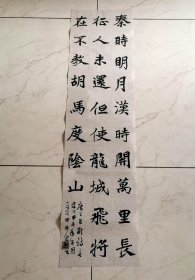 秦時明月漢時開萬里長
征人未還但使龍城飛將
在不教胡馬度陰山